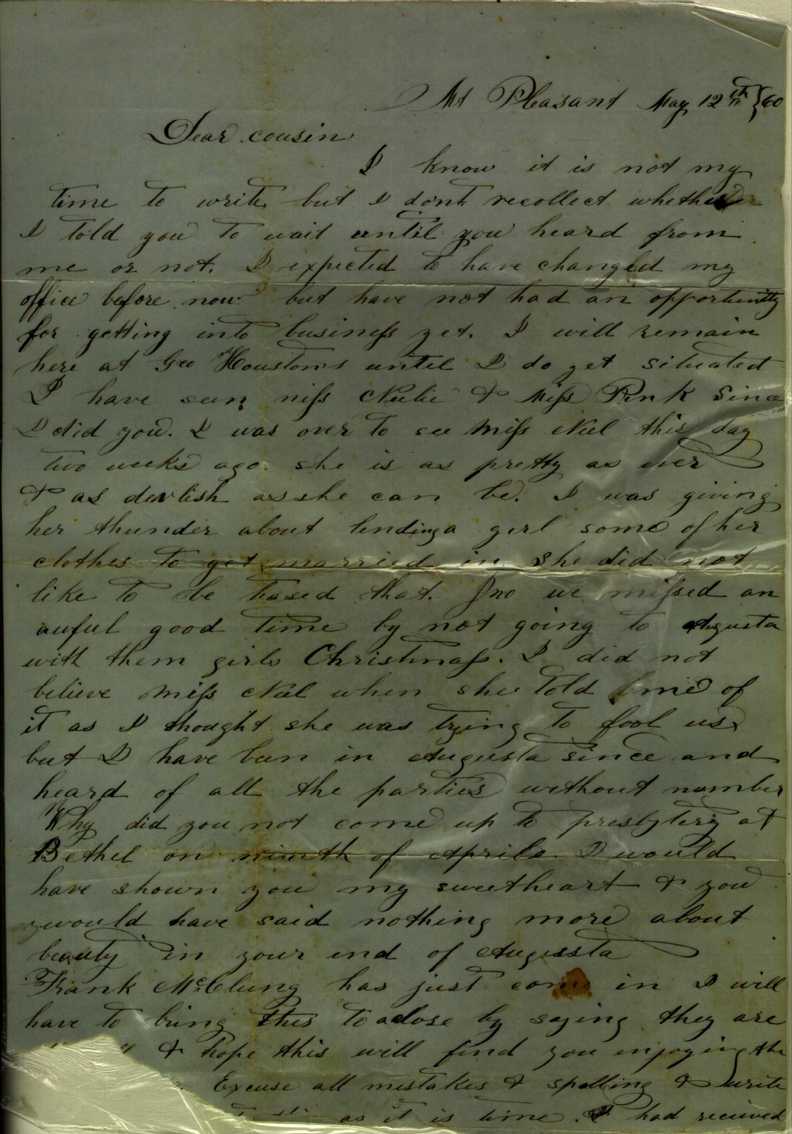 Mt Pleasant May 12th /60
Dear cousin
I know it is not my
time to write but I dont recollect whether
I told you to wait until you heard from
me or not. I expected to have changed my
office before now but have not had an opportunity
for getting into business yet. I will remain
here at Geo Houstons until I do get situated
I have seen miss Nelie & Miss Pink since
I did you. I was over to see Miss Nel this day
two weeks ago. she is as pretty as ever
& as devlish as she can be. I was giving
her thunder about lending a girl some of her
clothes to get married in she did not
like to be teased that. Jno we missed an
awful good time by not going to Augusta
with them girls Christmass. I did not
believe Miss Nel when she told me of
it as I thought she was trying to fool us
but I have been in Augusta since and
heard of all the parties without number
Why did you not come up to presbytery at
Bethel on ninth of Aprile. I would
have shown you my sweetheart & you
would have said nothing more about
beauty in your end of Augussta
Frank McClung has just come in I will
have to bring this to a close by saying they are
& hope this will find you enjoying the
Excuse all mistakes & spelling & write
as it is time. I had received